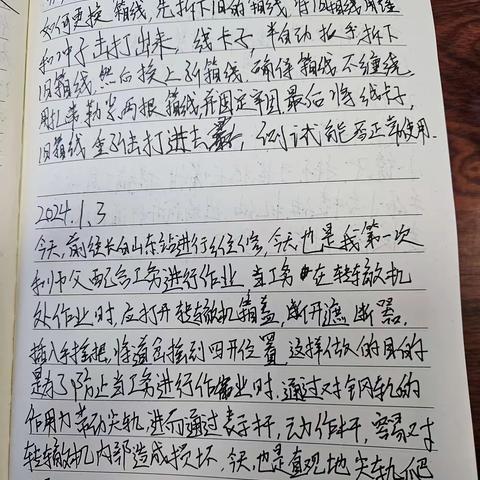 如何更换箱线,先拆下旧的箱线,将旧箱线用
和冲子击打出来,线卡子,半自动扳手拆下
旧箱线,然后接上新箱线,确保箱线不缠绕,
用扎带勒紧两根箱线,并固定牢固,最后将线卡子,
旧箱线重新击打进去,测试能否正常使用.
2024.1.3
今天,前往长白山东站进行,今天也是我第一次
和师父配合工务进行作业,当工务在转辙机
处作业时,应打开转辙机箱盖,断开遮断器,
插入手摇把,将道岔摇到四开位置,这样做的目的
是为了防止当工务进行作业时,通过对钢轨的
作用力带动尖轨,进而通过表示杆,动作杆,容易对
转辙机内部造成损坏.今天也是直观地尖轨爬